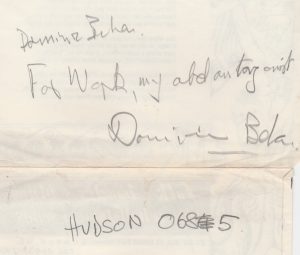 Dominic Behan.
For my old antagonist
Dominic Behan
HUDSON 0685